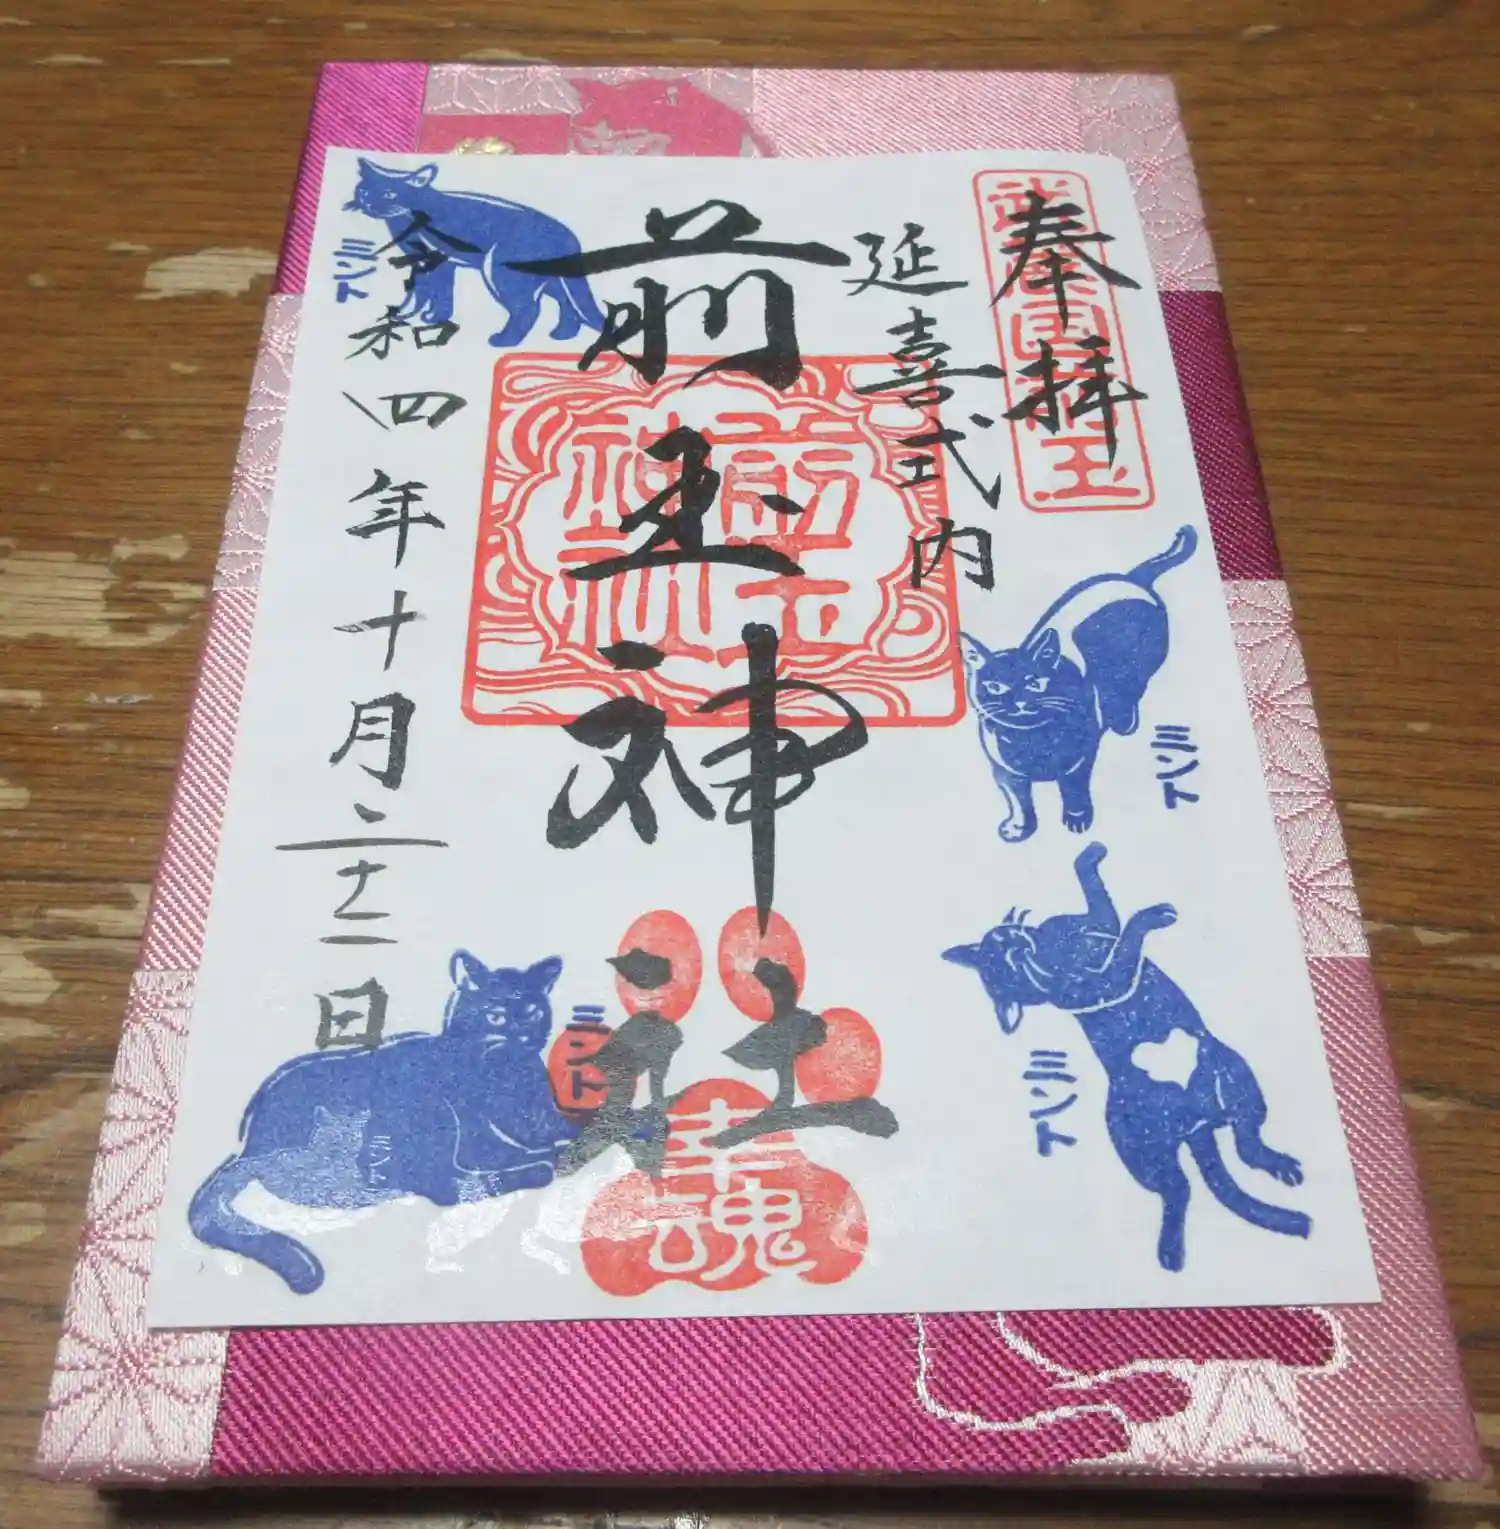 奉拝
武蔵国埼玉
延喜式内
前玉神社
前玉
神社
令和四年十月二十二日
ミント
ミント
ミント
ミント
ミント
幸魂